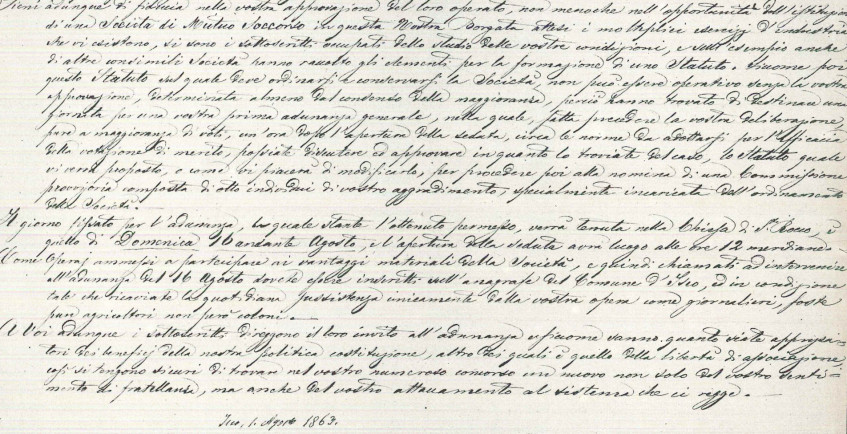 Pieni adunque di fiducia nella vostra approvazione del loro operato, non meno che nell'opportunità dell'istituzione
di una Società di Mutuo Soccorso in questa Nostra Borgata attesi i molteplici esercizj d'industria
che vi esistono, si sono i sottoscritti occupati dello studio delle vostre condizioni, e sull'esempio anche
di altre consimili Società hanno raccolto gli elementi per la formazione di uno Statuto. Siccome poi
questo Statuto sul quale deve ordinarsi e conservarsi la Società, non può essere operativo senza la vostra
approvazione, determinata almeno dal consenso della maggioranza, perciò hanno trovato di destinare una
giornata per una vostra prima adunanza generale, nella quale, fatta precedere la vostra deliberazione,
pure a maggioranza di voti, un'ora dopo l'apertura della seduta, circa le norme da adottarsi per l'efficacia
della votazione di merito, possiate discutere ed approvare in quanto lo troviate del caso, lo Statuto quale
vi verrà proposto, o come vi piacerà di modificarlo, per procedere poi alla nomina di una Commissione
provvisoria composta di otto individui di vostro aggradimento, specialmente incaricata dell'ordinamento
della Società.
Il giorno fissato per l'adunanza, la quale stante l'ottenuto permesso, verrà tenuta nella Chiesa di S. Rocco, è
quello di Domenica 16 andante Agosto, e l'apertura della seduta avrà luogo alle ore 12 meridiane.
Come Operaj ammessi a partecipare ai vantaggi materiali della Società, e quindi chiamati ad intervenire
all'adunanza del 16 Agosto dovete essere inscritti sull'anagrafe del Comune d'Iseo, ed in condizione
tale che ricaviate la quotidiana sussistenza unicamente dalla vostra opera come giornalieri, foste
pure agricoltori non però coloni.
A Voi adunque i sottoscritti dirigono il loro invito all'adunanza e siccome sanno quanto siate apprezza-
tori dei beneficj della nostra politica costituzione, altro dei quali è quello della libertà di associazione,
così si tengono sicuri di trovare nel vostro numeroso concorso una nuova non solo del vostro senti-
mento di fratellanza, ma anche del vostro attaccamento al sistema che ci regge.
Iseo, 1. Agosto 1863.